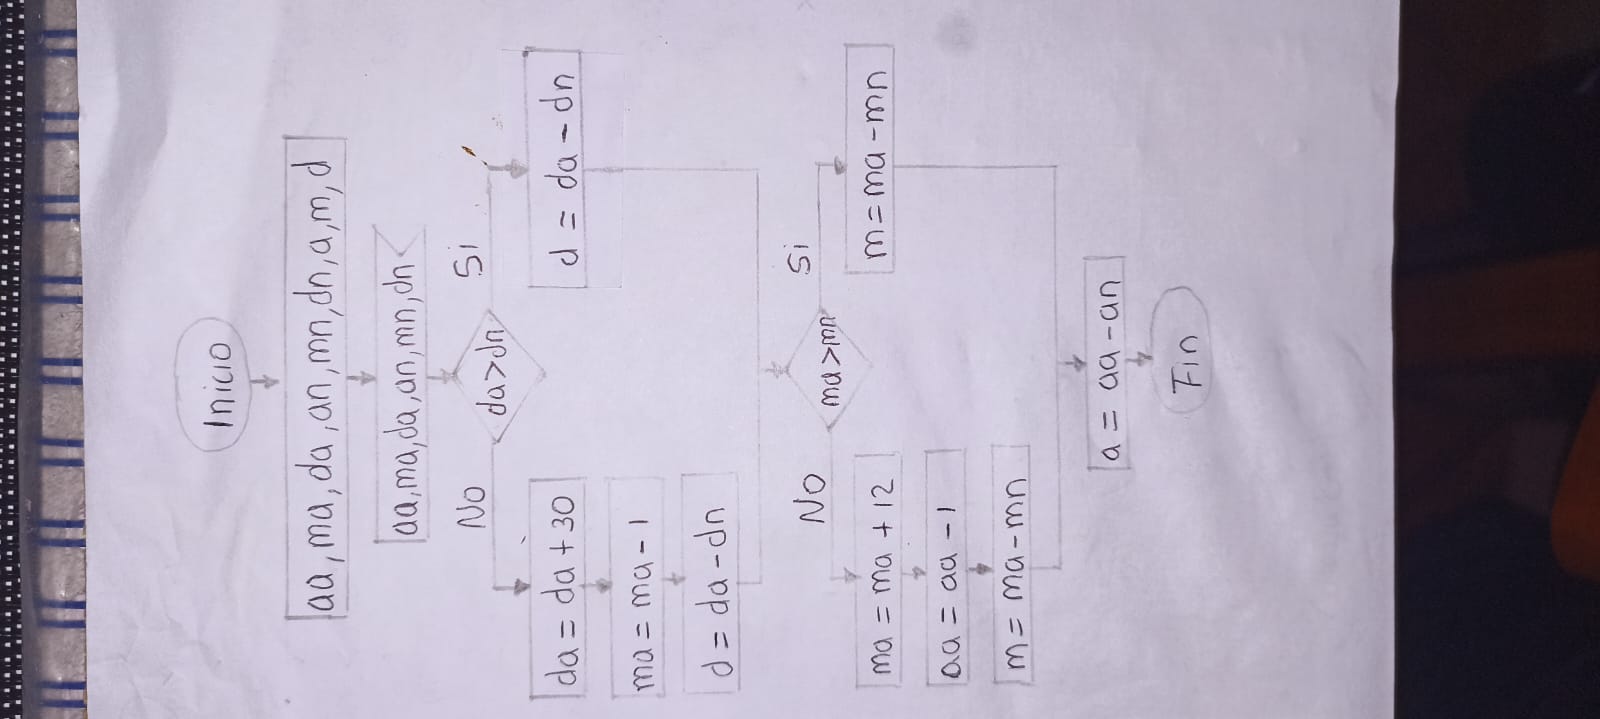 Inicio
aa, ma, da, an, mn, dn, a, m, d
aa, ma, da, an, mn, dn
da > dn
No
Si
da = da + 30
ma = ma - 1
d = da - dn
d = da - dn
ma > mn
No
Si
ma = ma + 12
aa = aa - 1
m = ma - mn
m = ma - mn
a = aa - an
Fin